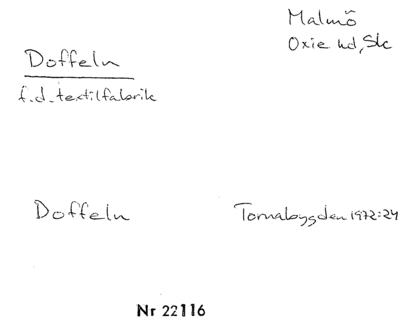 Malmö
Oxie hd, Sk
Doffeln
f.d. textilfabrik
Doffeln Tornabygden 1972:24
Nr 22116